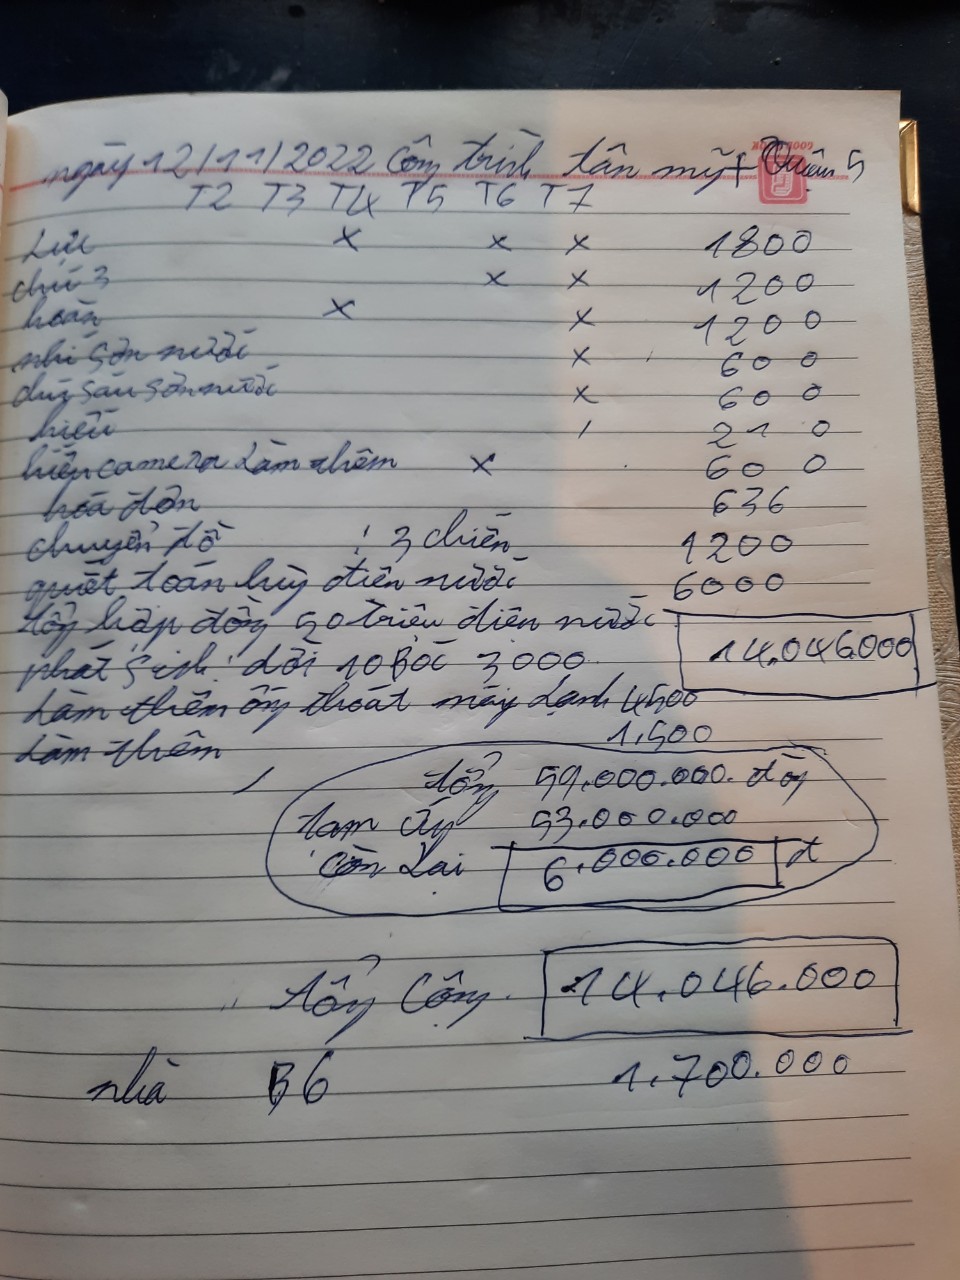 ngày 12/11/2022 Công trình tân mỹ + Quận 5
T2 T3 T4 T5 T6 T7
Lực x x x 1800
chú 3 x x 1200
hoàn x x 1200
nhí sơn nước x 600
chú sáu sơn nước x 600
hiếu / 210
hiếu camera Làm thêm x 600
hoá đơn 636
chuyển đồ : 3 chiến 1200
quyết toán huy điện nước 6000
tổng hợp đồng 50 triệu điện nước
14.046.000
phát sinh : dời 10 Bóc 3000
Làm thêm ống thoát máy Lạnh 4500
Làm thêm 1.500
tổng 59.000.000. đồng
tam ứng 53.000.000
còn Lại 6.000.000 đ
tổng Cộng. 14.046.000
nhà B6 1.700.000